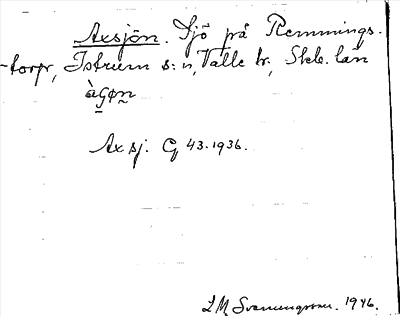 Axsjön. Sjö på Remmings-
torp, Istrum s:n, Valle hr, Skb. län
Axsj. G 43. 1936.
L M Svenungsson. 1946.